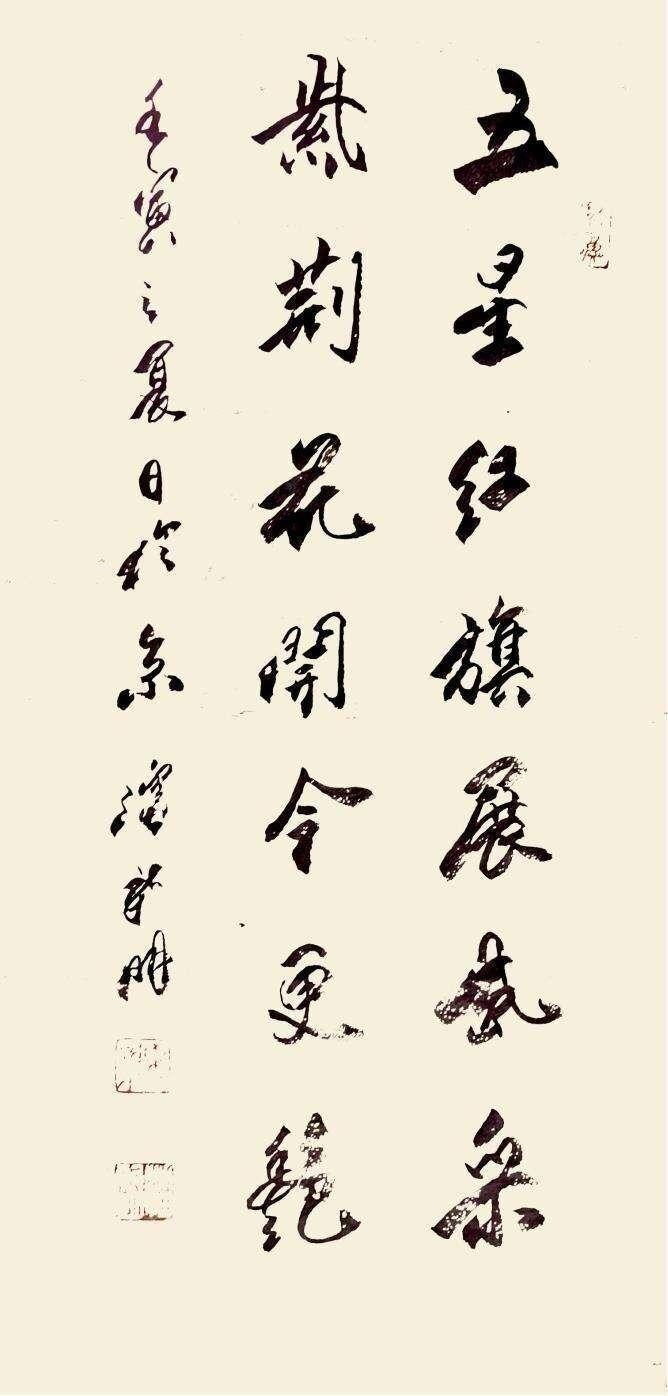 五星紅旗展風采
紫荆花開今更艷
壬寅之夏日於京